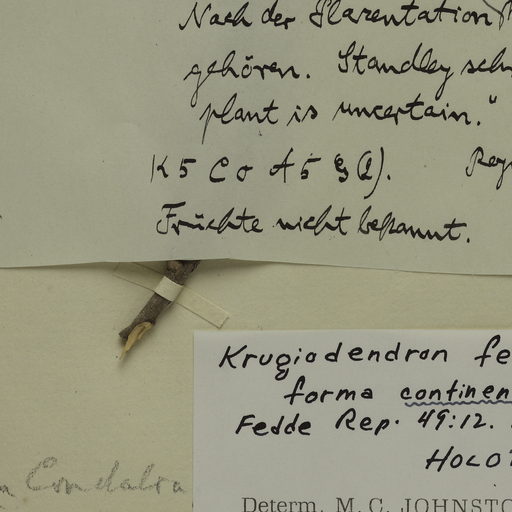 Nach der Plazentation
gehören. Standley
plant is uncertain."
K5 C5 A5 G(2).
Früchte nicht bekannt.
Krugiodendron fe
forma continen
Fedde Rep. 49:12.
HOLOT
Condalia
Determ. M. C. JOHNSTO